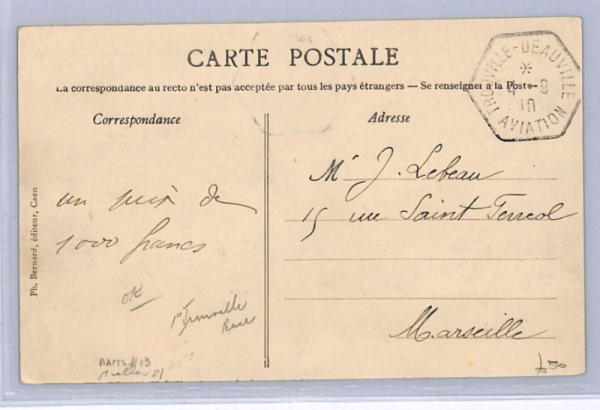 CARTE POSTALE
La correspondance au recto n'est pas acceptée par tous les pays étrangers — Se renseigner à la Poste
TROUVILLE-DEAUVILLE
*
4-9
10
AVIATION
Correspondance
Adresse
un prix de
1000 francs
Mr J. Lebeau
15 rue Saint Ferreol
Marseille
Ph. Bernard, éditeur, Caen
OK
1er Trouville
Race
£50